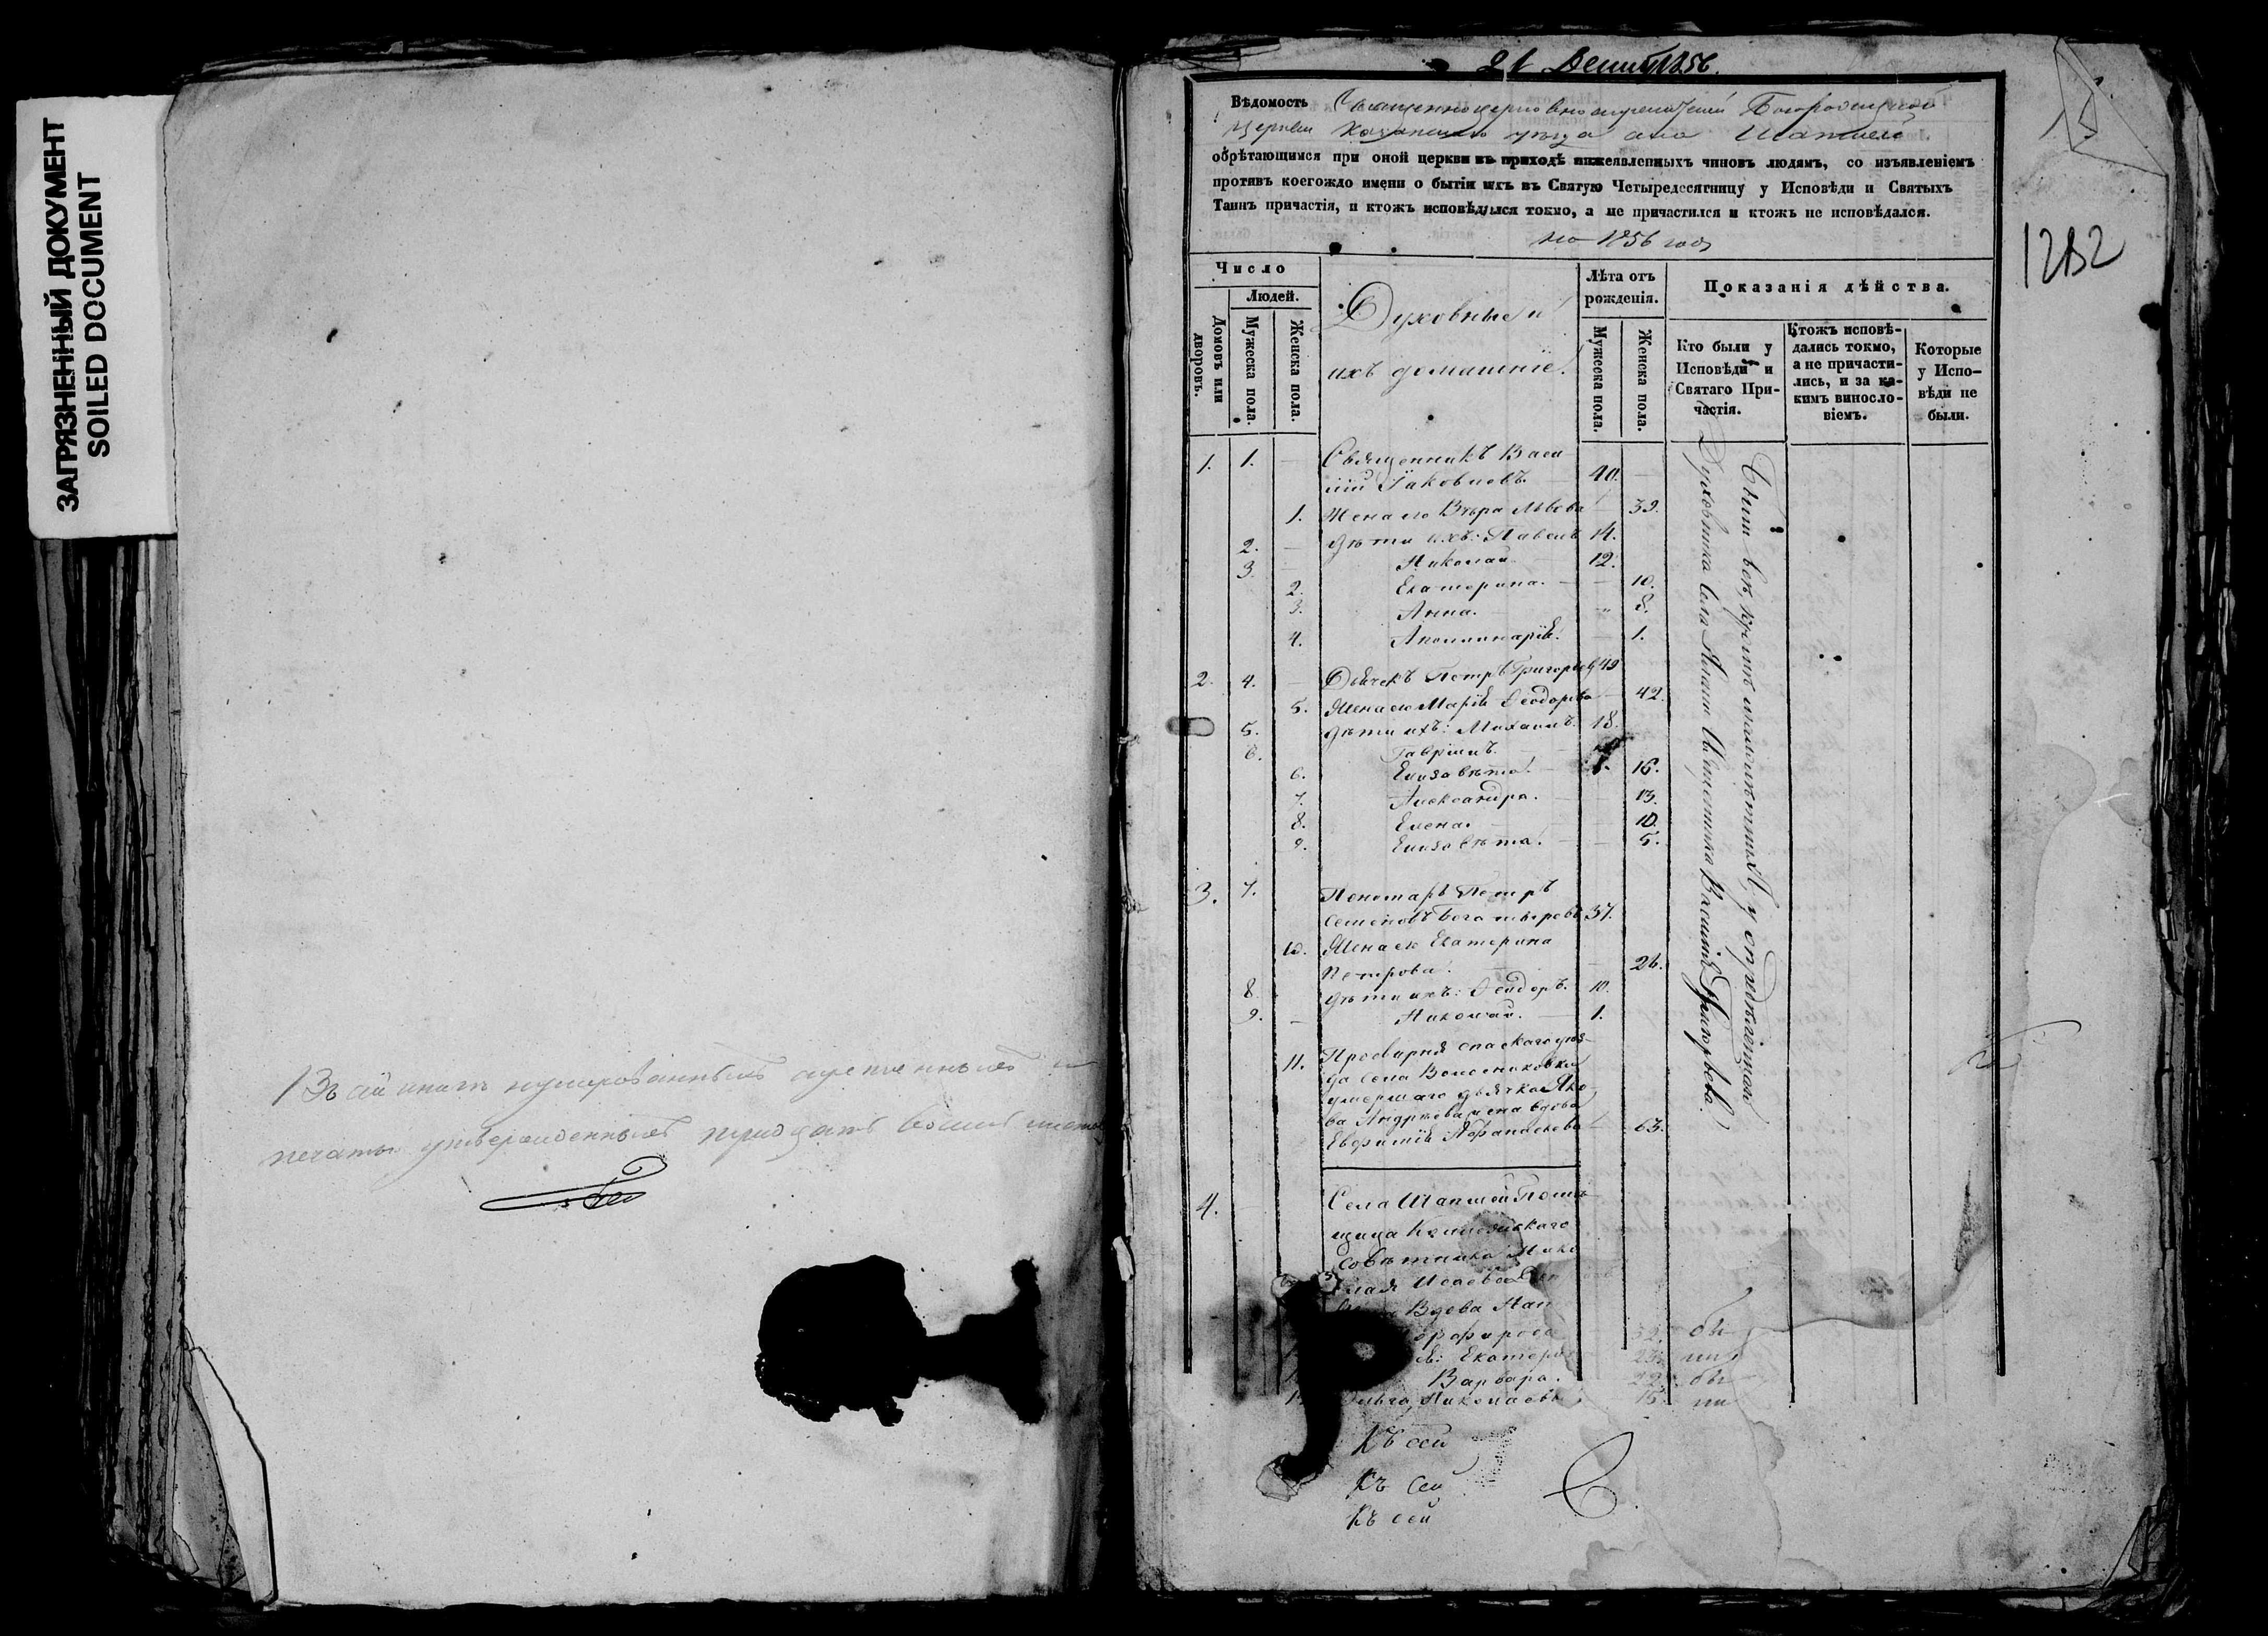 ЗАГРЯЗНЕННЫЙ ДОКУМЕНТ
SOILED DOCUMENT
Въ сей книгѣ нумерованныхъ
печатью утвержденныхъ тридцать
21 Декаб 1856.
1252
Вѣдомость Священноцерковнослужителей Богородицкой
Церкви Казанскаго уѣзда села Шапшей
обрѣтающимся при оной церкви въ приходѣ нижеявленныхъ чиновъ людямъ, со изъявленіемъ
противъ коегождо имени о бытіи ихъ въ Святую Четыредесятницу у Исповѣди и Святыхъ
Таинъ причастія, и ктожъ исповѣдался токмо, а не причастился и ктожъ не исповѣдался.
на 1856 годъ
Число
Людей.
Домовъ или дворовъ.
Мужеска пола.
Женска пола.
Духовные и
ихъ домашніе.
Лѣта отъ рожденія.
Мужеска пола.
Женска пола.
Показанія дѣйства.
Кто были у Исповѣди и Святаго Причастія.
Ктожъ исповѣдались токмо, а не причастились, и за какимъ винословіемъ.
Которые у Исповѣди не были.
1. 1. — Священникъ Васи
лій Іаковлевъ 40. —
1. Жена его Вѣра Львова 39.
2. — дѣти ихъ: Павелъ 14.
3. — Николай 12.
2. Екатерина. — 10.
3. Анна. — 8.
4. Аполлинарія. — 1.
2. 4. — Дьячекъ Петръ Григорьевъ 49
5. Жена его Марія Ѳеодорова — 42.
5. дѣти ихъ: Михаилъ. 18.
6. Гавріилъ.
6. Елизавета. 16.
7. Александра. — 13.
8. Елена. — 10.
9. Елизавета. — 5.
3. 7. Пономарь Петръ
Семеновъ Богатыревъ 37.
10. Жена его Екатерина
Петрова. — 26.
8. дѣти ихъ: Ѳеодоръ. 10.
9. — Николай. — 1.
11. Просвирня Спаскаго уѣз-
да села
умершаго дьячка Яко
ва Андреева жена вдова
Евфимія Афанасьева — 63.
Были всѣ, кромѣ малолѣтнихъ, у опредѣленнаго
Духовника Села Священника Василія Григорьева.
4. Села Шапшей Помѣ
щица Коллежскаго
Совѣтника Нико
лая
Вдова
52. бы
Екатери 23. ли
Варвара. 22. бы
Ольга Николаевы 15. ли
Къ сей
Къ сей
Къ сей